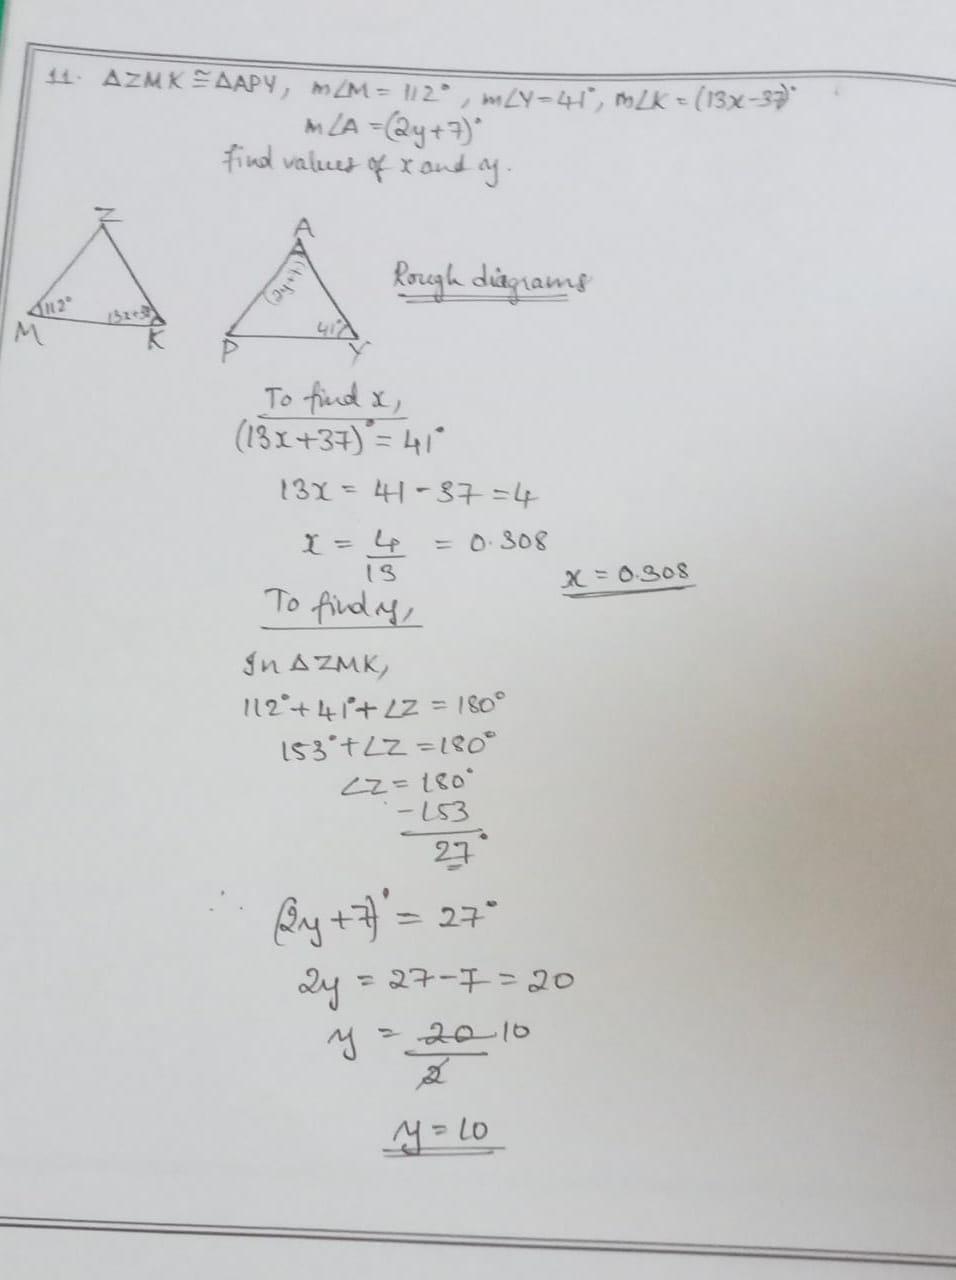 11. ΔZMK ≅ ΔAPY, m∠M = 112°, m∠Y = 41°, m∠K = (13x-37)°
m∠A = (2y+7)°
find values of x and y.
Z
A
112°
13x+37
M
K
(2y+7)
41°
P
Y
Rough diagrams
To find x,
(13x+37)° = 41°
13x = 41 - 37 = 4
x = 4/13 = 0.308
x = 0.308
To find y,
In ΔZMK,
112° + 41° + ∠Z = 180°
153° + ∠Z = 180°
∠Z = 180°
-153
27°
∴ (2y+7)° = 27°
2y = 27-7 = 20
y = 20/2 10
y = 10